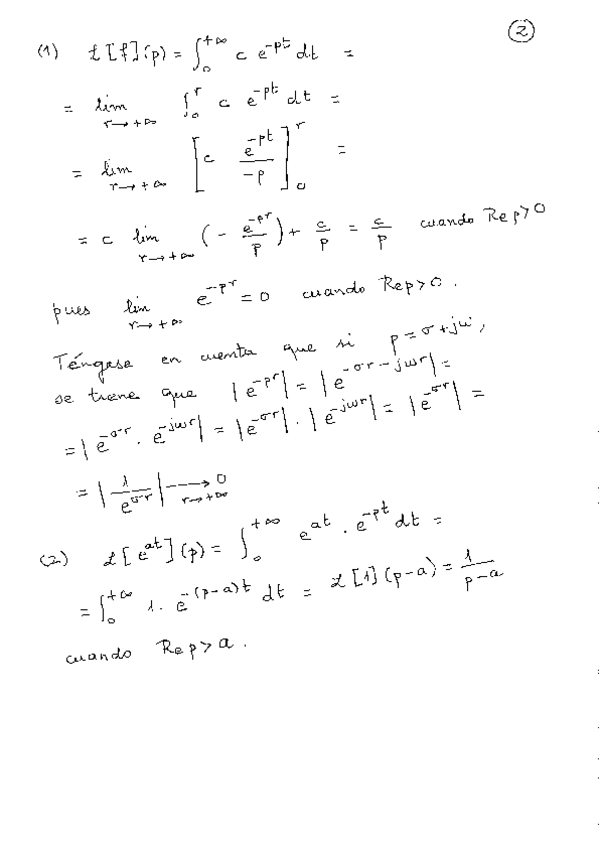 ②
(1) ℒ[f](p) = ∫₀^{+∞} c e^{-pt} dt =
= lim_{r→+∞} ∫₀^r c e^{-pt} dt =
= lim_{r→+∞} [c e^{-pt}/-p]₀^r =
= c lim_{r→+∞} (- e^{-pr}/p) + c/p = c/p cuando Re p>0
pues lim_{r→+∞} e^{-pr} = 0 cuando Re p>0.
Téngase en cuenta que si p=σ+jω,
se tiene que |e^{-pr}| = |e^{-σr-jωr}| =
= |e^{-σr} · e^{-jωr}| = |e^{-σr}| · |e^{-jωr}| = |e^{-σr}| =
= |1/e^{σr}| ----→_{r→+∞} 0
(2) ℒ[e^{at}](p) = ∫₀^{+∞} e^{at} · e^{-pt} dt =
= ∫₀^{+∞} 1· e^{-(p-a)t} dt = ℒ[1](p-a) = 1/p-a
cuando Re p>a.